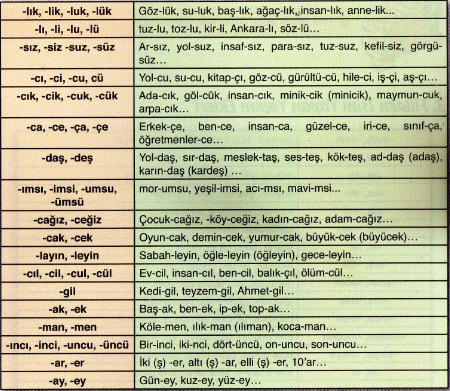 -lık, -lik, -luk, -lük
Göz-lük, su-luk, baş-lık, ağaç-lık, insan-lık, anne-lik...
-lı, -li, -lu, -lü
tuz-lu, toz-lu, kir-li, Ankara-lı, söz-lü…
-sız, -siz -suz, -süz
Ar-sız, yol-suz, insaf-sız, para-sız, tuz-suz, kefil-siz, görgü-
süz…
-cı, -ci, -cu, cü
Yol-cu, su-cu, kitap-çı, göz-cü, gürültü-cü, hile-ci, iş-çi, aş-çı…
-cık, -cik, -cuk, -cük
Ada-cık, göl-cük, insan-cık, minik-cik (minicik), maymun-cuk,
arpa-cık…
-ca, -ce, -ça, -çe
Erkek-çe, ben-ce, insan-ca, güzel-ce, iri-ce, sınıf-ça,
öğretmenler-ce…
-daş, -deş
Yol-daş, sır-daş, meslek-taş, ses-teş, kök-teş, ad-daş (adaş),
karın-daş (kardeş) …
-ımsı, -imsi, -umsu,
-ümsü
mor-umsu, yeşil-imsi, acı-msı, mavi-msi...
-cağız, -ceğiz
Çocuk-cağız, -köy-ceğiz, kadın-cağız, adam-cağız…
-cak, -cek
Oyun-cak, demin-cek, yumur-cak, büyük-cek (büyücek)…
-layın, -leyin
Sabah-leyin, öğle-leyin (öğleyin), gece-leyin…
-cıl, -cil, -cul, -cül
Ev-cil, insan-cıl, ben-cil, balık-çıl, ölüm-cül…
-gil
Kedi-gil, teyzem-gil, Ahmet-gil…
-ak, -ek
Baş-ak, ben-ek, ip-ek, top-ak…
-man, -men
Köle-men, ılık-man (ılıman), koca-man…
-ıncı, -inci, -uncu, -üncü
Bir-inci, iki-nci, dört-üncü, on-uncu, son-uncu…
-ar, -er
İki (ş) -er, altı (ş) -ar, elli (ş) -er, 10'ar…
-ay, -ey
Gün-ey, kuz-ey, yüz-ey…